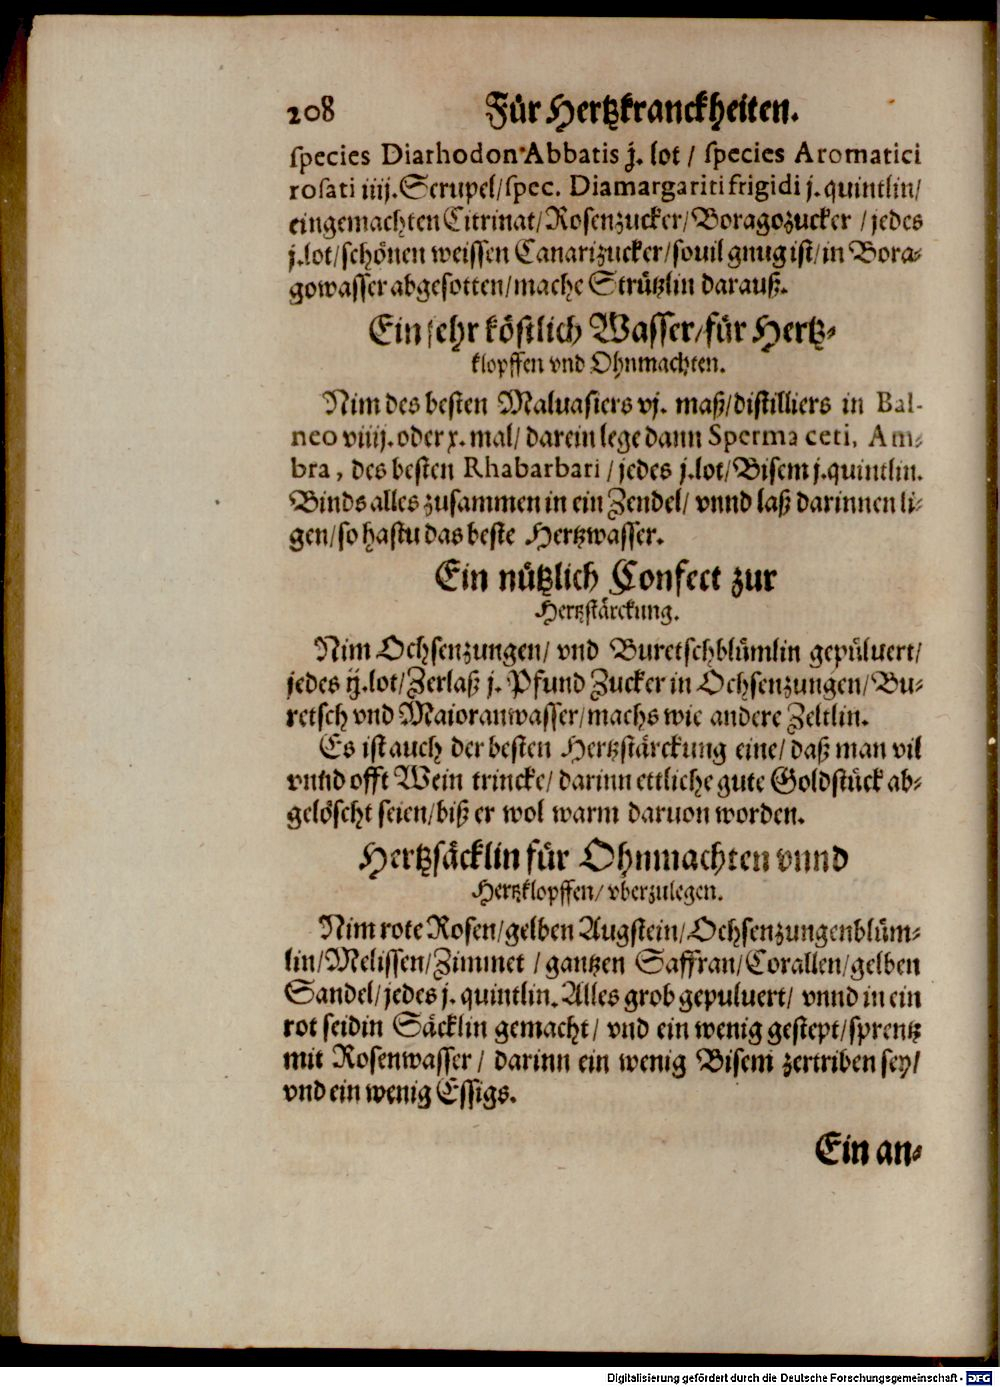 208 Für Hertzkranckheiten.
species Diarhodon Abbatis j. lot / species Aromatici
rosati iiij. Scrupel/ spec. Diamargariti frigidi j. quintlin/
eingemachten Citrinat/ Rosenzucker/ Boragozucker / jedes
j. lot/ schönen weissen Canarizucker/ souil gnug ist/ in Bora-
gowasser abgesotten/ mache Strützlin darauß.
Ein sehr köstlich Wasser/ für Hertz-
klopffen vnd Ohnmachten.
Nim des besten Maluasiers vj. maß/ distilliers in Bal-
neo viiij. oder x. mal/ darein lege dann Sperma ceti, Am-
bra, des besten Rhabarbari / jedes j. lot/ Bisem j. quintlin.
Binds alles zusammen in ein Zendel/ vnnd laß darinnen li-
gen/ so hastu das beste Hertzwasser.
Ein nützlich Confect zur
Hertzstärckung.
Nim Ochsenzungen/ vnd Buretschblümlin gepüluert/
jedes ij. lot/ Zerlaß j. Pfund Zucker in Ochsenzungen/ Bu-
retsch vnd Maioranwasser/ machs wie andere Zeltlin.
Es ist auch der besten Hertzstärckung eine/ daß man vil
vnnd offt Wein trincke/ darinn ettliche gute Goldstück ab-
gelöscht seien/ biß er wol warm daruon worden.
Hertzsäcklin für Ohnmachten vnnd
Hertzklopffen/ vberzulegen.
Nim rote Rosen/ gelben Augstein/ Ochsenzungenblüm-
lin/ Melissen/ Zimmet / gantzen Saffran/ Corallen/ gelben
Sandel/ jedes j. quintlin. Alles grob gepuluert/ vnnd in ein
rot seidin Säcklin gemacht/ vnd ein wenig gestept/ sprentz
mit Rosenwasser / darinn ein wenig Bisem zertriben sey/
vnd ein wenig Essigs.
Ein an-
Digitalisierung gefördert durch die Deutsche Forschungsgemeinschaft - DFG